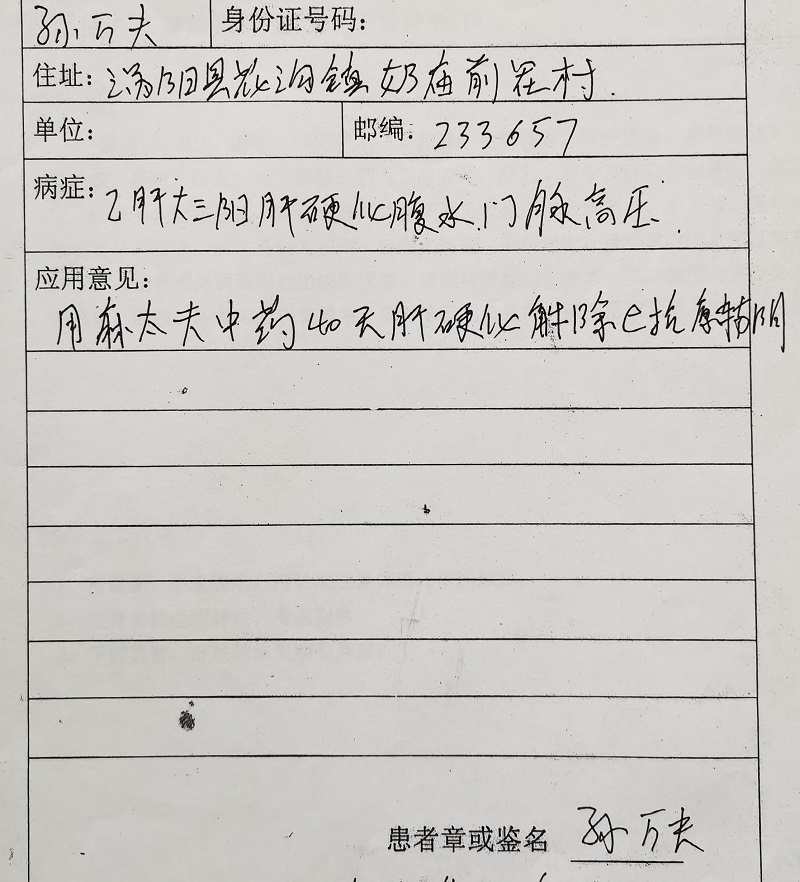 孙万夫 身份证号码:
住址: 涡阳县龙山镇奶庙前瞿村.
单位: 邮编: 233657
病症: 乙肝大三阳肝硬化腹水.门脉高压.
应用意见:
用麻太夫中药40天肝硬化解除e抗原转阴
患者章或鉴名 孙万夫